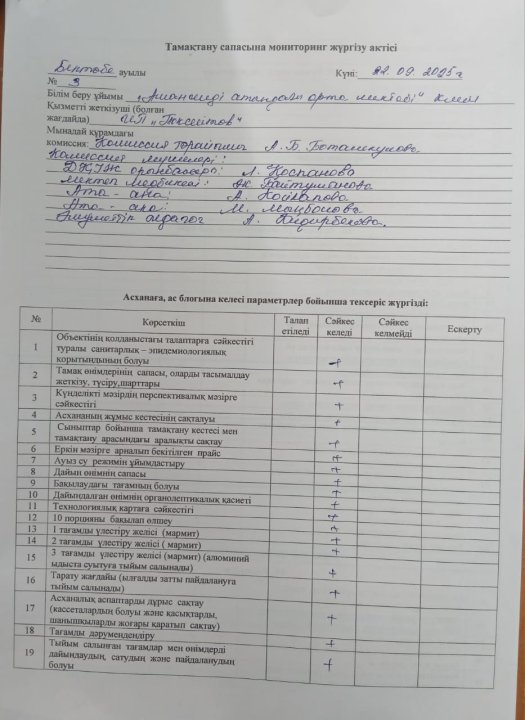 Тамақтану сапасына мониторинг жүргізу актісі
Бектөбе ауылы Күні: 22.09.2025г
№ 3
Білім беру ұйымы орта мектебі" КММ
Қызметті жеткізуші (болған
жағдайда) ИП
Мынадай құрамдағы
комиссия: Комиссия төрайымы А. Б.
Комиссия мүшелері:
орынбасары: Л. Коспанова
мектеп медбикесі: Ж.
Ата - ана: А.
Ата - ана: М.
Әлеуметтік педагог А.
Асханаға, ас блогына келесі параметрлер бойынша тексеріс жүргізді:
№ Көрсеткіш Талап етіледі Сәйкес келеді Сәйкес келмейді Ескерту
1 Объектінің қолданыстағы талаптарға сәйкестігі
туралы санитарлық – эпидемиологиялық
қорытындының болуы +
2 Тамақ өнімдерінің сапасы, оларды тасымалдау
жеткізу, түсіру,шарттары +
3 Күнделікті мәзірдің перспективалық мәзірге
сәйкестігі +
4 Асхананың жұмыс кестесінің сақталуы +
5 Сыныптар бойынша тамақтану кестесі мен
тамақтану арасындағы аралықты сақтау +
6 Еркін мәзірге арналып бекітілген прайс +
7 Ауыз су режимін ұйымдастыру +
8 Дайын өнімнің сапасы +
9 Бақылаудағы тағамның болуы +
10 Дайындалған өнімнің органолептикалық қасиеті +
11 Технологиялық картаға сәйкестігі +
12 10 порцияны бақылап өлшеу +
13 1 тағамды үлестіру желісі (мармит) +
14 2 тағамды үлестіру желісі ( мармит) +
15 3 тағамды үлестіру желісі (мармит) (алюминий
ыдыста суытуға тыйым салынады) +
16 Тарату жағдайы (ылғалды затты пайдалануға
тыйым салынады) +
17 Асханалық аспаптарды дұрыс сақтау
(кассеталардың болуы және қасықтарды,
шанышқыларды жоғары қаратып сақтау) +
18 Тағамды дәрумендендіру +
19 Тыйым салынған тағамдар мен өнімдерді
дайындаудың, сатудың және пайдаланудың
болуы +